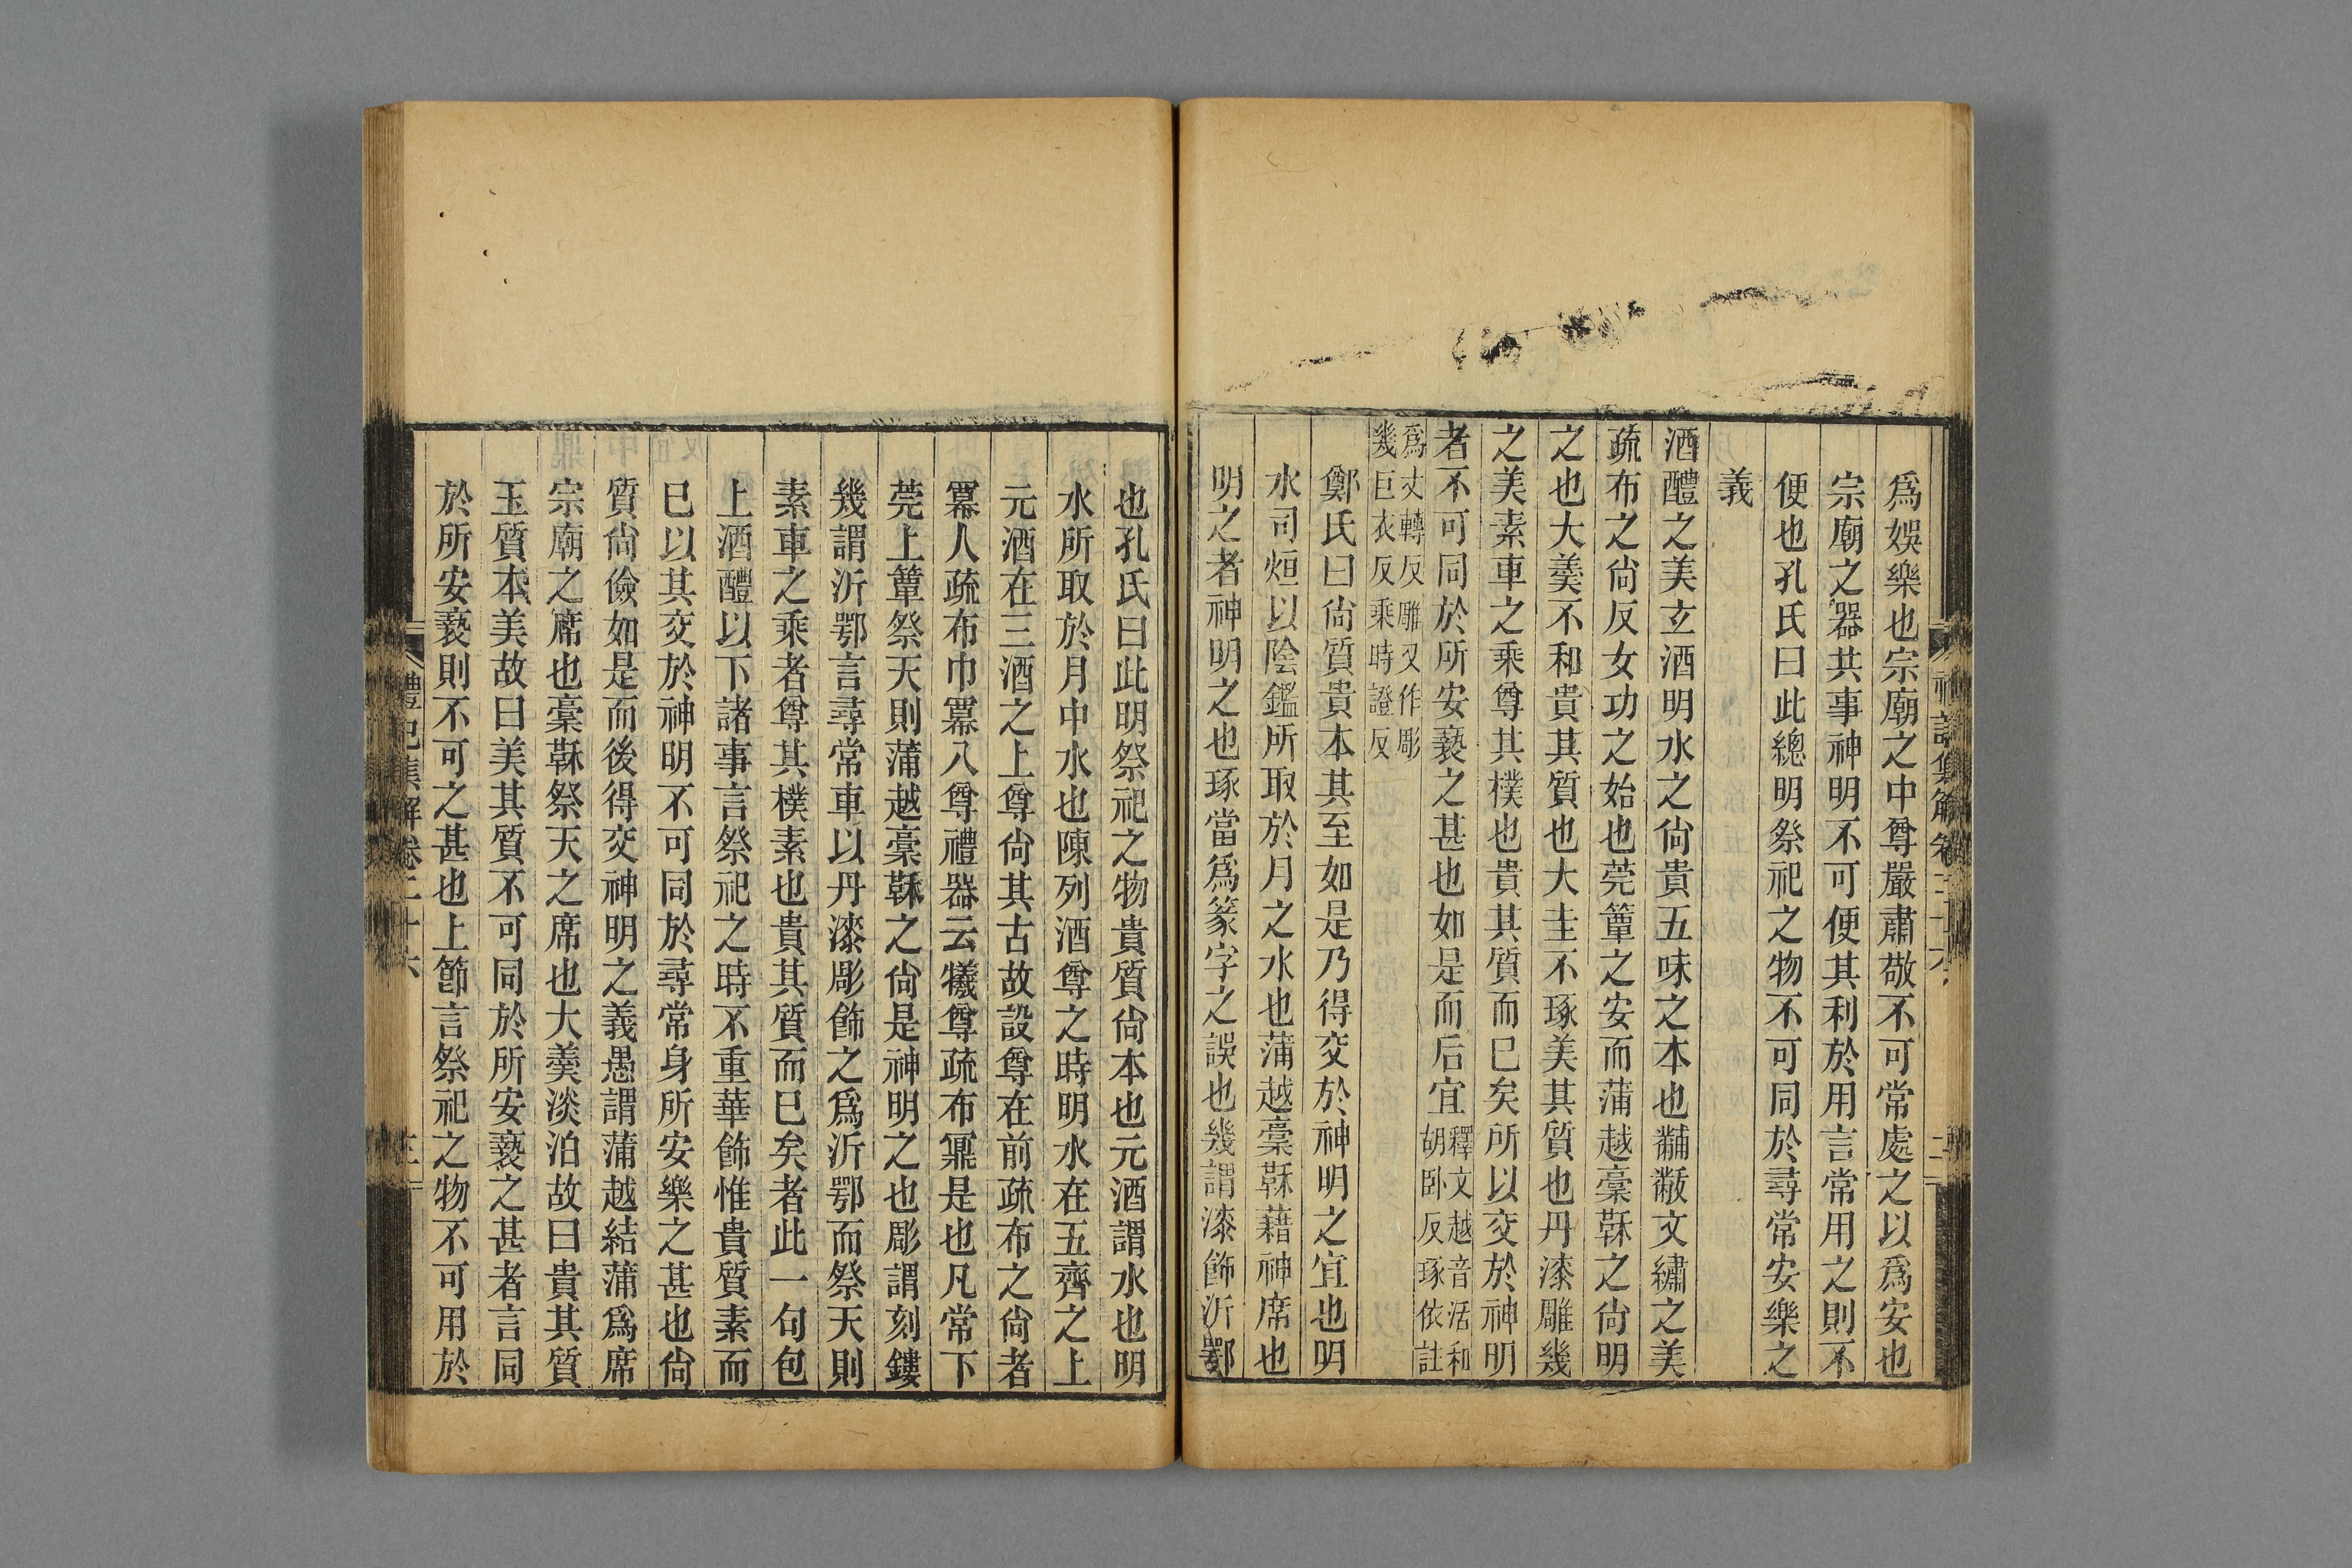 爲娛樂也宗廟之中尊嚴肅敬不可常處之以爲安也
宗廟之器共事神明不可便其利於用言常用之則不
便也孔氏曰此總明祭祀之物不可同於尋常安樂之
義
酒醴之美玄酒明水之尙貴五味之本也黼黻文繡之美
疏布之尙反女功之始也莞簟之安而蒲越稾鞂之尙明
之也大羹不和貴其質也大圭不琢美其質也丹漆雕幾
之美素車之乘尊其樸也貴其質而已矣所以交於神明
者不可同於所安褻之甚也如是而后宜釋文越音活和
胡卧反琢依註
爲丈轉反雕又作彫
幾巨衣反乘時證反
鄭氏曰尙質貴本其至如是乃得交於神明之宜也明
水司烜以陰鑑所取於月之水也蒲越稾鞂藉神席也
明之者神明之也琢當爲篆字之誤也幾謂漆飾沂鄂
也孔氏曰此明祭祀之物貴質尙本也元酒謂水也明
水所取於月中水也陳列酒尊之時明水在五齊之上
元酒在三酒之上尊尙其古故設尊在前疏布之尙者
冪人疏布巾冪八尊禮器云犧尊疏布鼏是也凡常下
莞上簟祭天則蒲越稾鞂之尙是神明之也彫謂刻鏤
幾謂沂鄂言尋常車以丹漆彫飾之爲沂鄂而祭天則
素車之乘者尊其樸素也貴其質而已矣者此一句包
上酒醴以下諸事言祭祀之時不重華飾惟貴質素而
已以其交於神明不可同於尋常身所安樂之甚也尙
質尙儉如是而後得交神明之義愚謂蒲越結蒲爲席
宗廟之席也稾鞂祭天之席也大羹淡泊故曰貴其質
玉質本美故曰美其質不可同於所安褻之甚者言同
於所安褻則不可之甚也上節言祭祀之物不可用於
禮記集解卷二十六
三